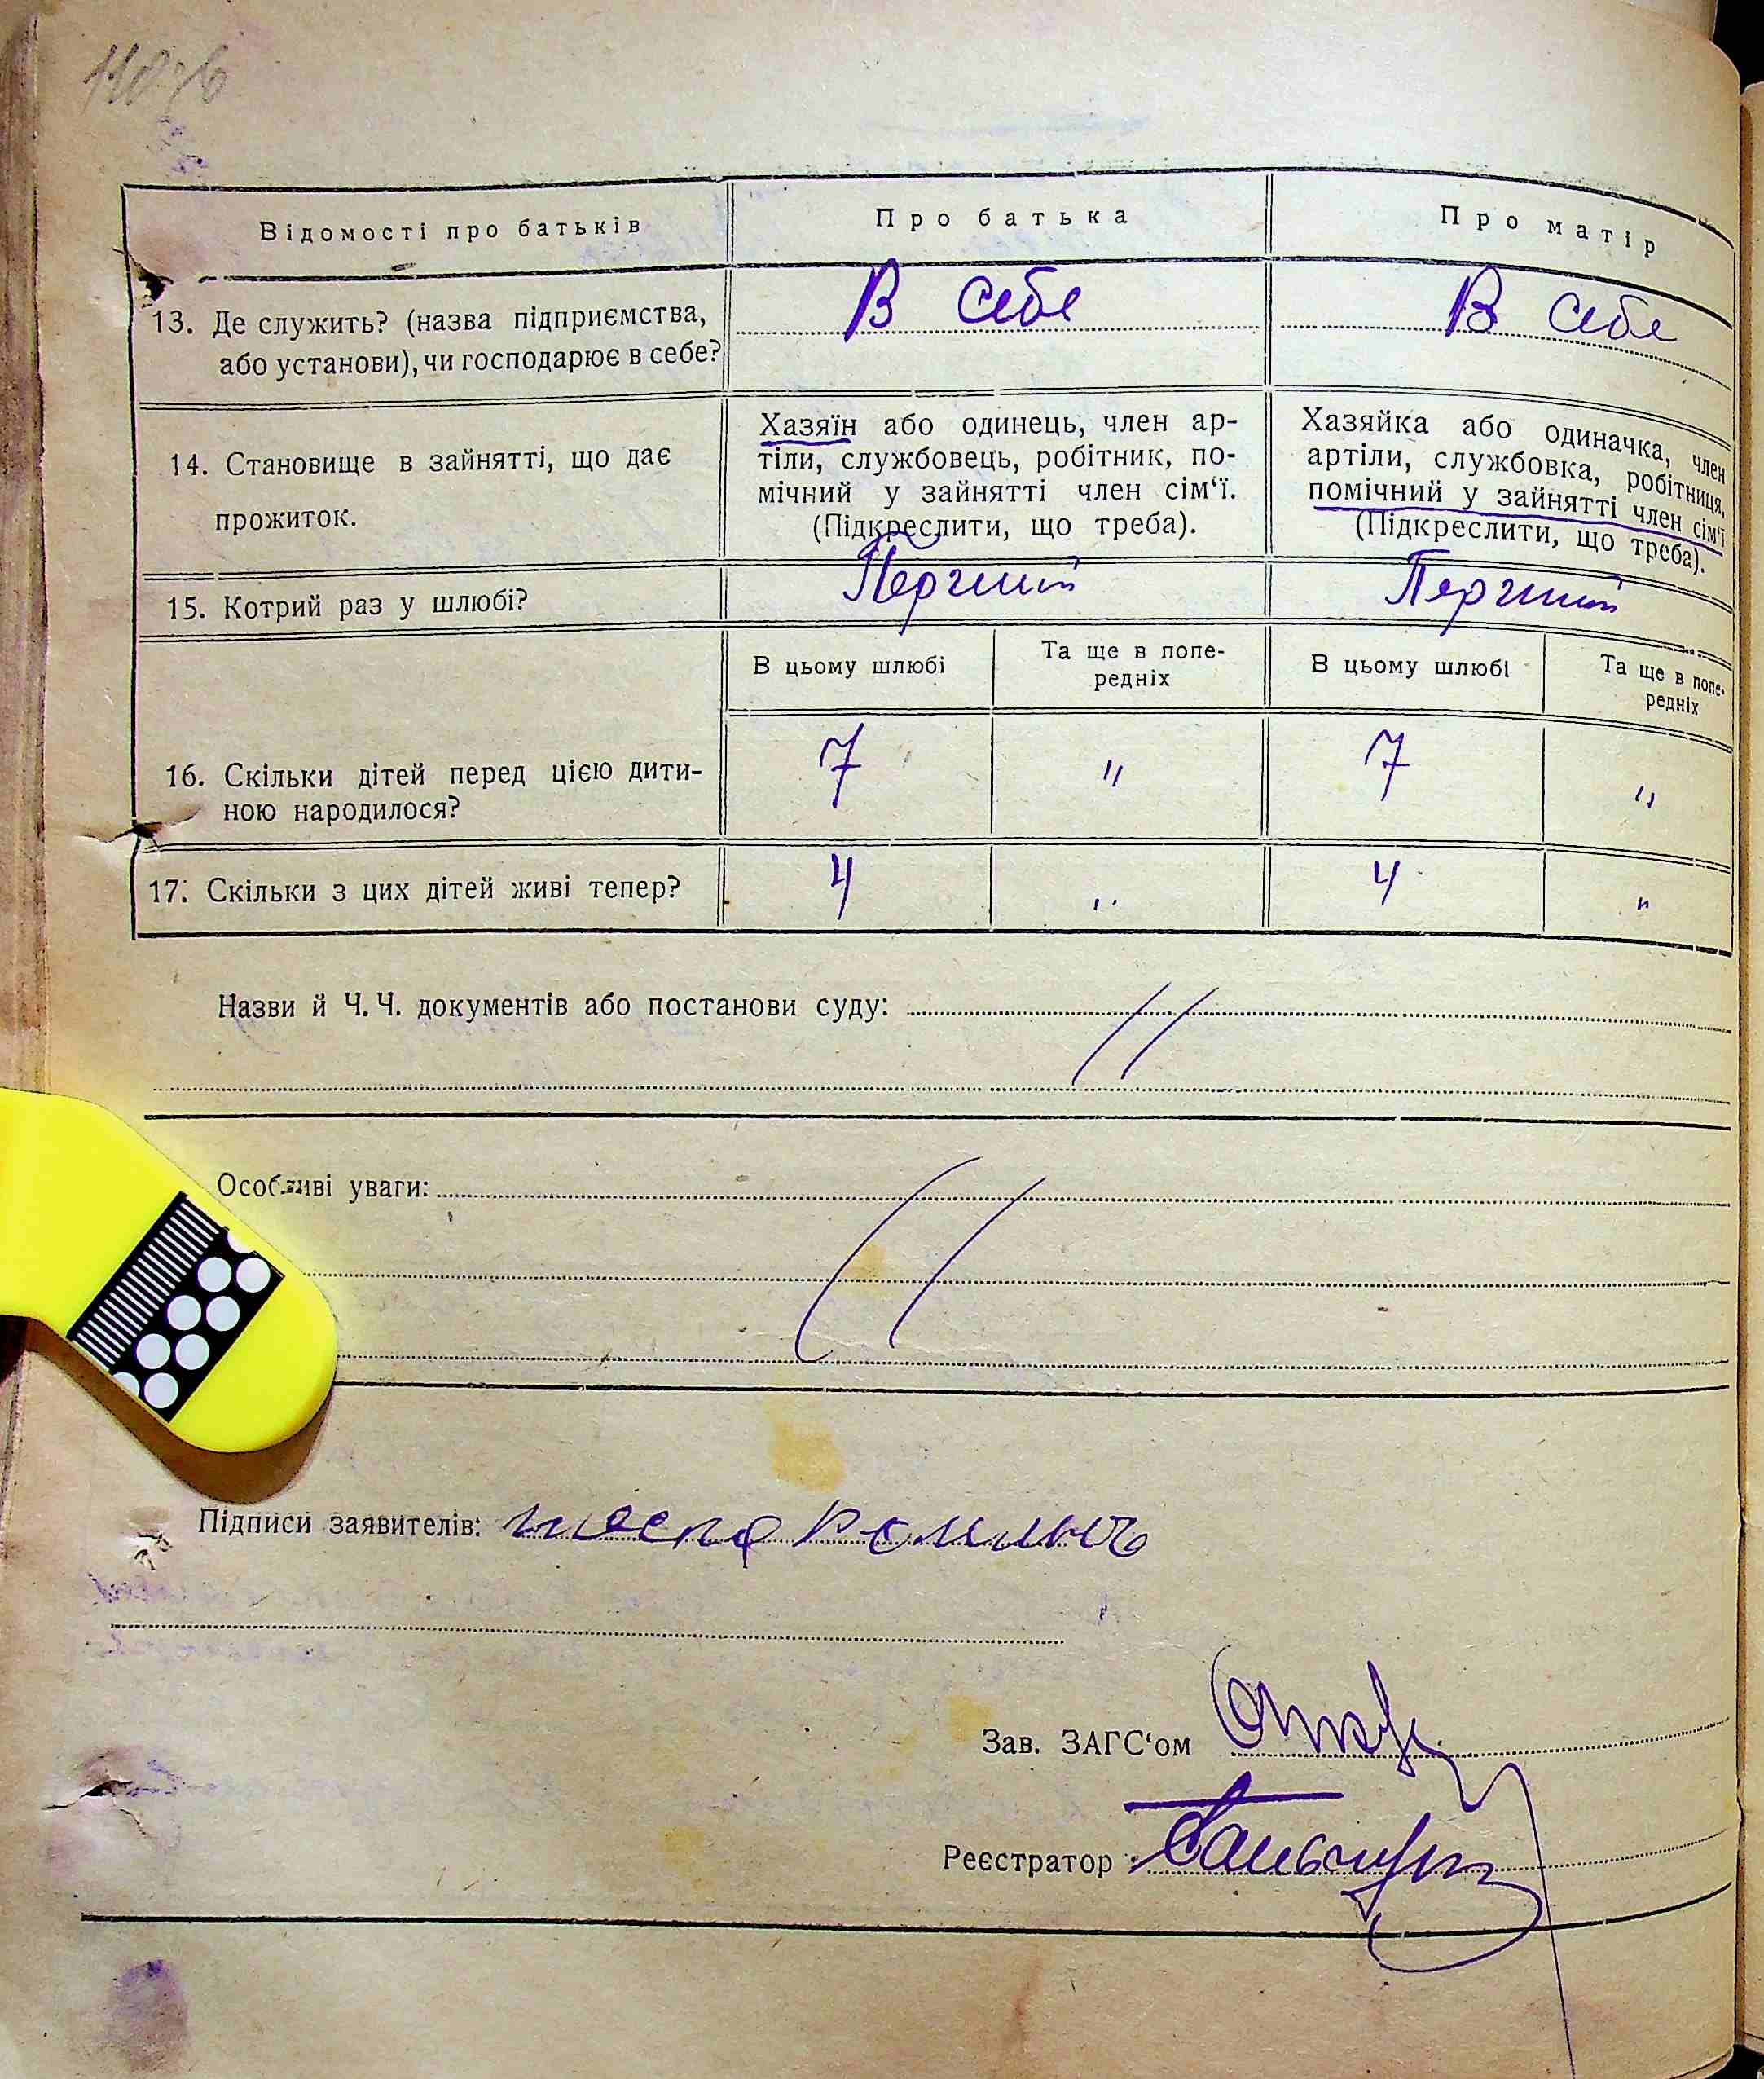 Відомості про батьків
Про батька
Про матір
13. Де служить? (назва підприємства,
або установи), чи господарює в себе?
В себе
В себе
14. Становище в зайнятті, що дає
прожиток.
Хазяїн або одинець, член ар-
тіли, службовець, робітник, по-
мічний у зайнятті член сім‘ї.
(Підкреслити, що треба).
Хазяйка або одиначка, член
артіли, службовка, робітниця,
помічний у зайнятті член сім‘ї
(Підкреслити, що треба).
15. Котрий раз у шлюбі?
Перший
Перший
В цьому шлюбі
Та ще в попе-
редніх
В цьому шлюбі
Та ще в попе-
редніх
16. Скільки дітей перед цією дити-
ною народилося?
7 " 7 "
17. Скільки з цих дітей живі тепер?
4 " 4 "
Назви й Ч. Ч. документів або постанови суду: //
Особливі уваги: //
Підписи заявителів:
Зав. ЗАГС‘ом
Реєстратор